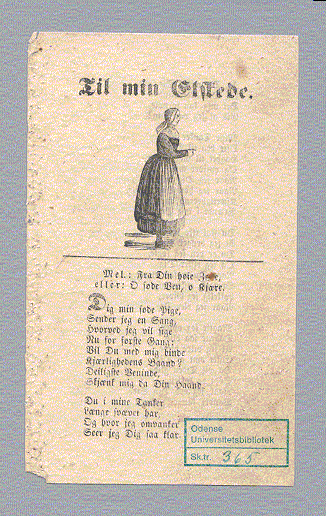 Til min Elskede.
Mel.: Fra Din høie
eller: O søde Ven, o Kjære.
Dig min søde Pige,
Sender jeg en Sang,
Hvorved jeg vil sige
Nu for første Gang:
Vil Du med mig binde
Kjærlighedens Baand?
Deiligste Veninde,
Skjænk mig da Din Haand.
Du i mine Tanker
Længe svævet har,
Og hvor jeg omvanker
Seer jeg Dig saa klar
Odense
Universitetsbibliotek
Sk.tr. 365